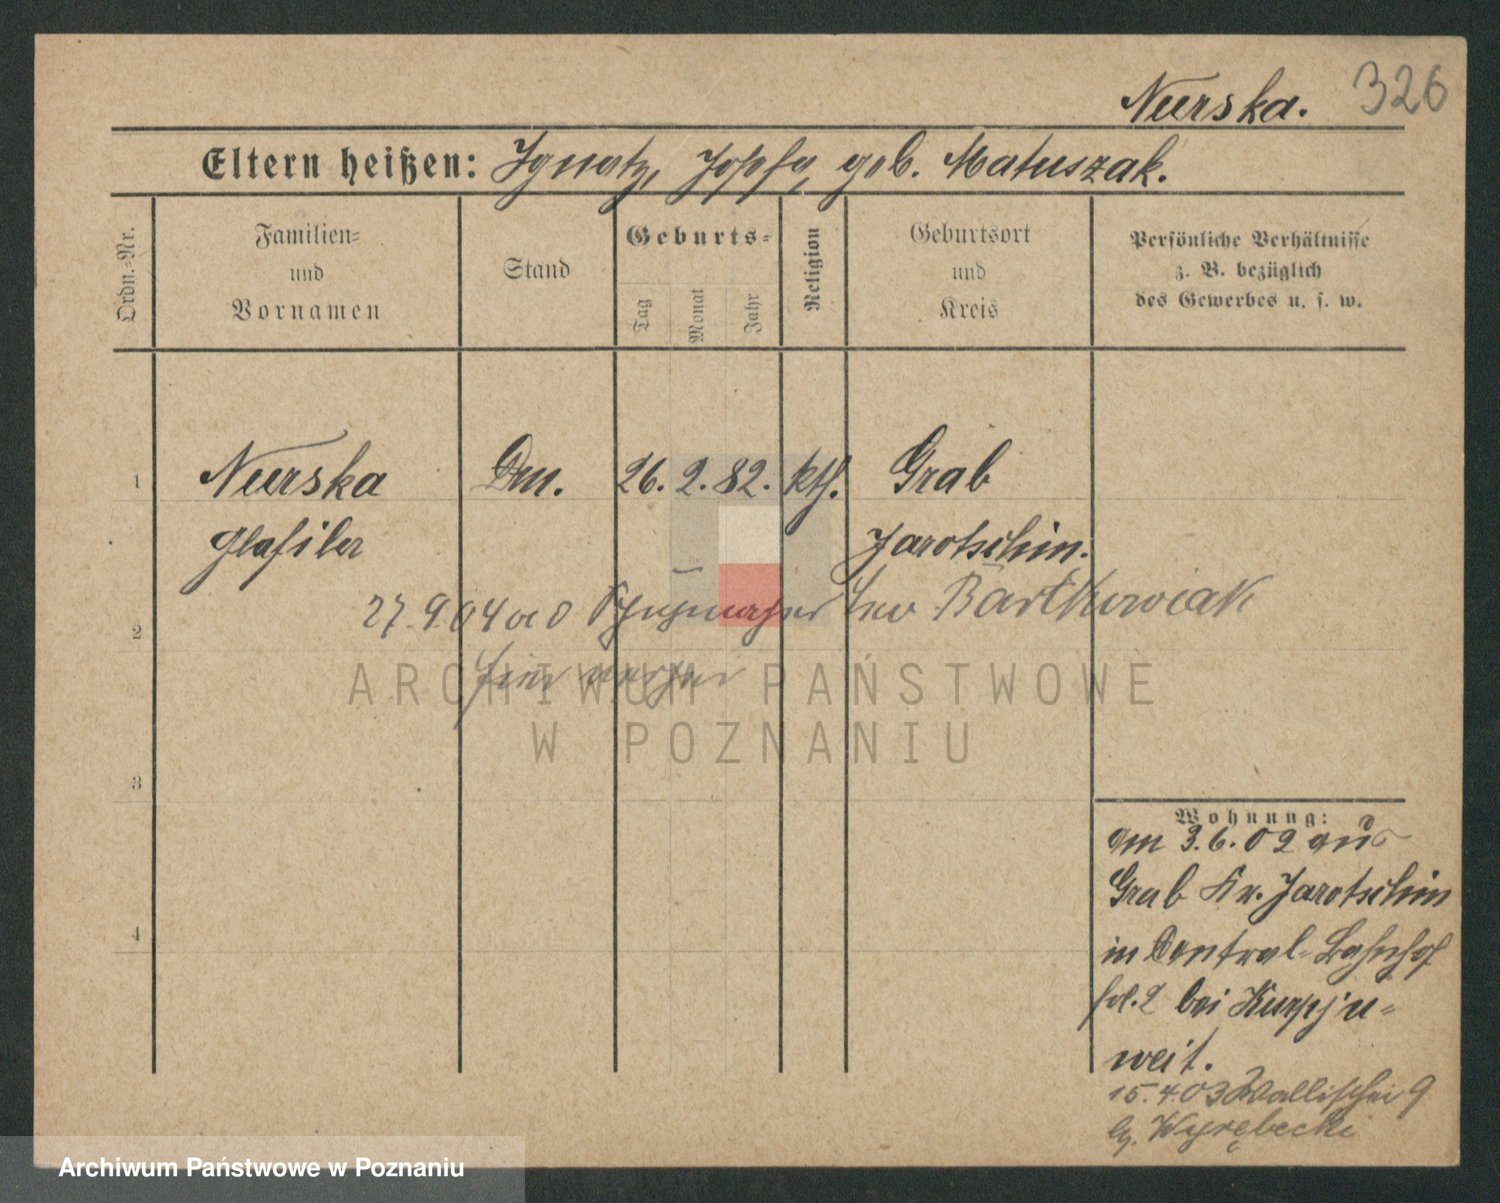 Nurska. 326
Eltern heißen: Ignatz, Josefa, geb. Matuszak.
Ordn.-Nr.
Familien-
und
Vornamen
Stand
Geburts-
Tag
Monat
Jahr
Religion
Geburtsort
und
Kreis
Persönliche Verhältnisse
z. B. bezüglich
des Gewerbes u. s. w.
1 Nurska 26. 2. 82. kth. Grab
Jarotschin.
27. 9. 04 Schuhmacher Leo Bartkowiak
2
ARCHIWUM PAŃSTWOWE
W POZNANIU
3
Wohnung:
am 3. 6. 02 aus
Grab Kr. Jarotschin
4
in Central-Bahnhof
bei Kurpju-
weit.
15. 4. 03 Wallischei 9
Wyrębecki
Archiwum Państwowe w Poznaniu